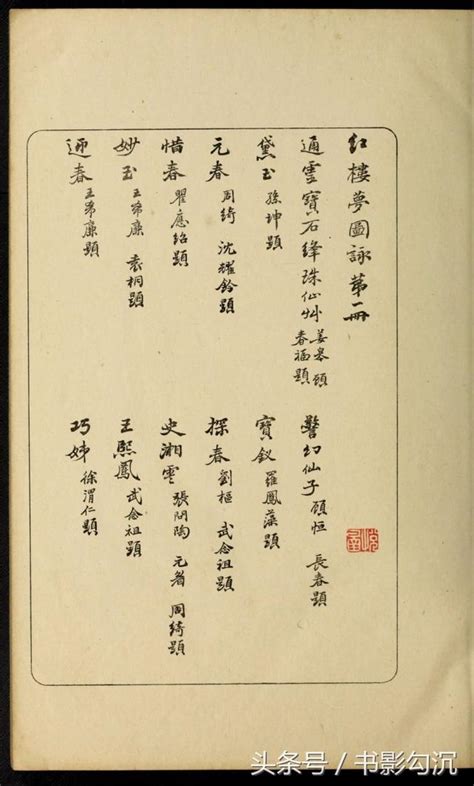 红樓夢圖詠第一冊
通霊寶石絳珠仙艸 姜皋 顧春福題 警幻仙子 顧恒 長春題
黛玉 孫坤題 寶釵 羅鳳藻題
元春 周綺 沈耀鈴題 探春 劉樞 武念祖題
惜春 瞿應紹題 史湘雲 張問陶 元 周綺題
妙玉 王希廉 袁桐題 王熙鳳 武念祖題
迎春 王希廉題 巧姊 徐渭仁題
头条号 / 书影勾沉